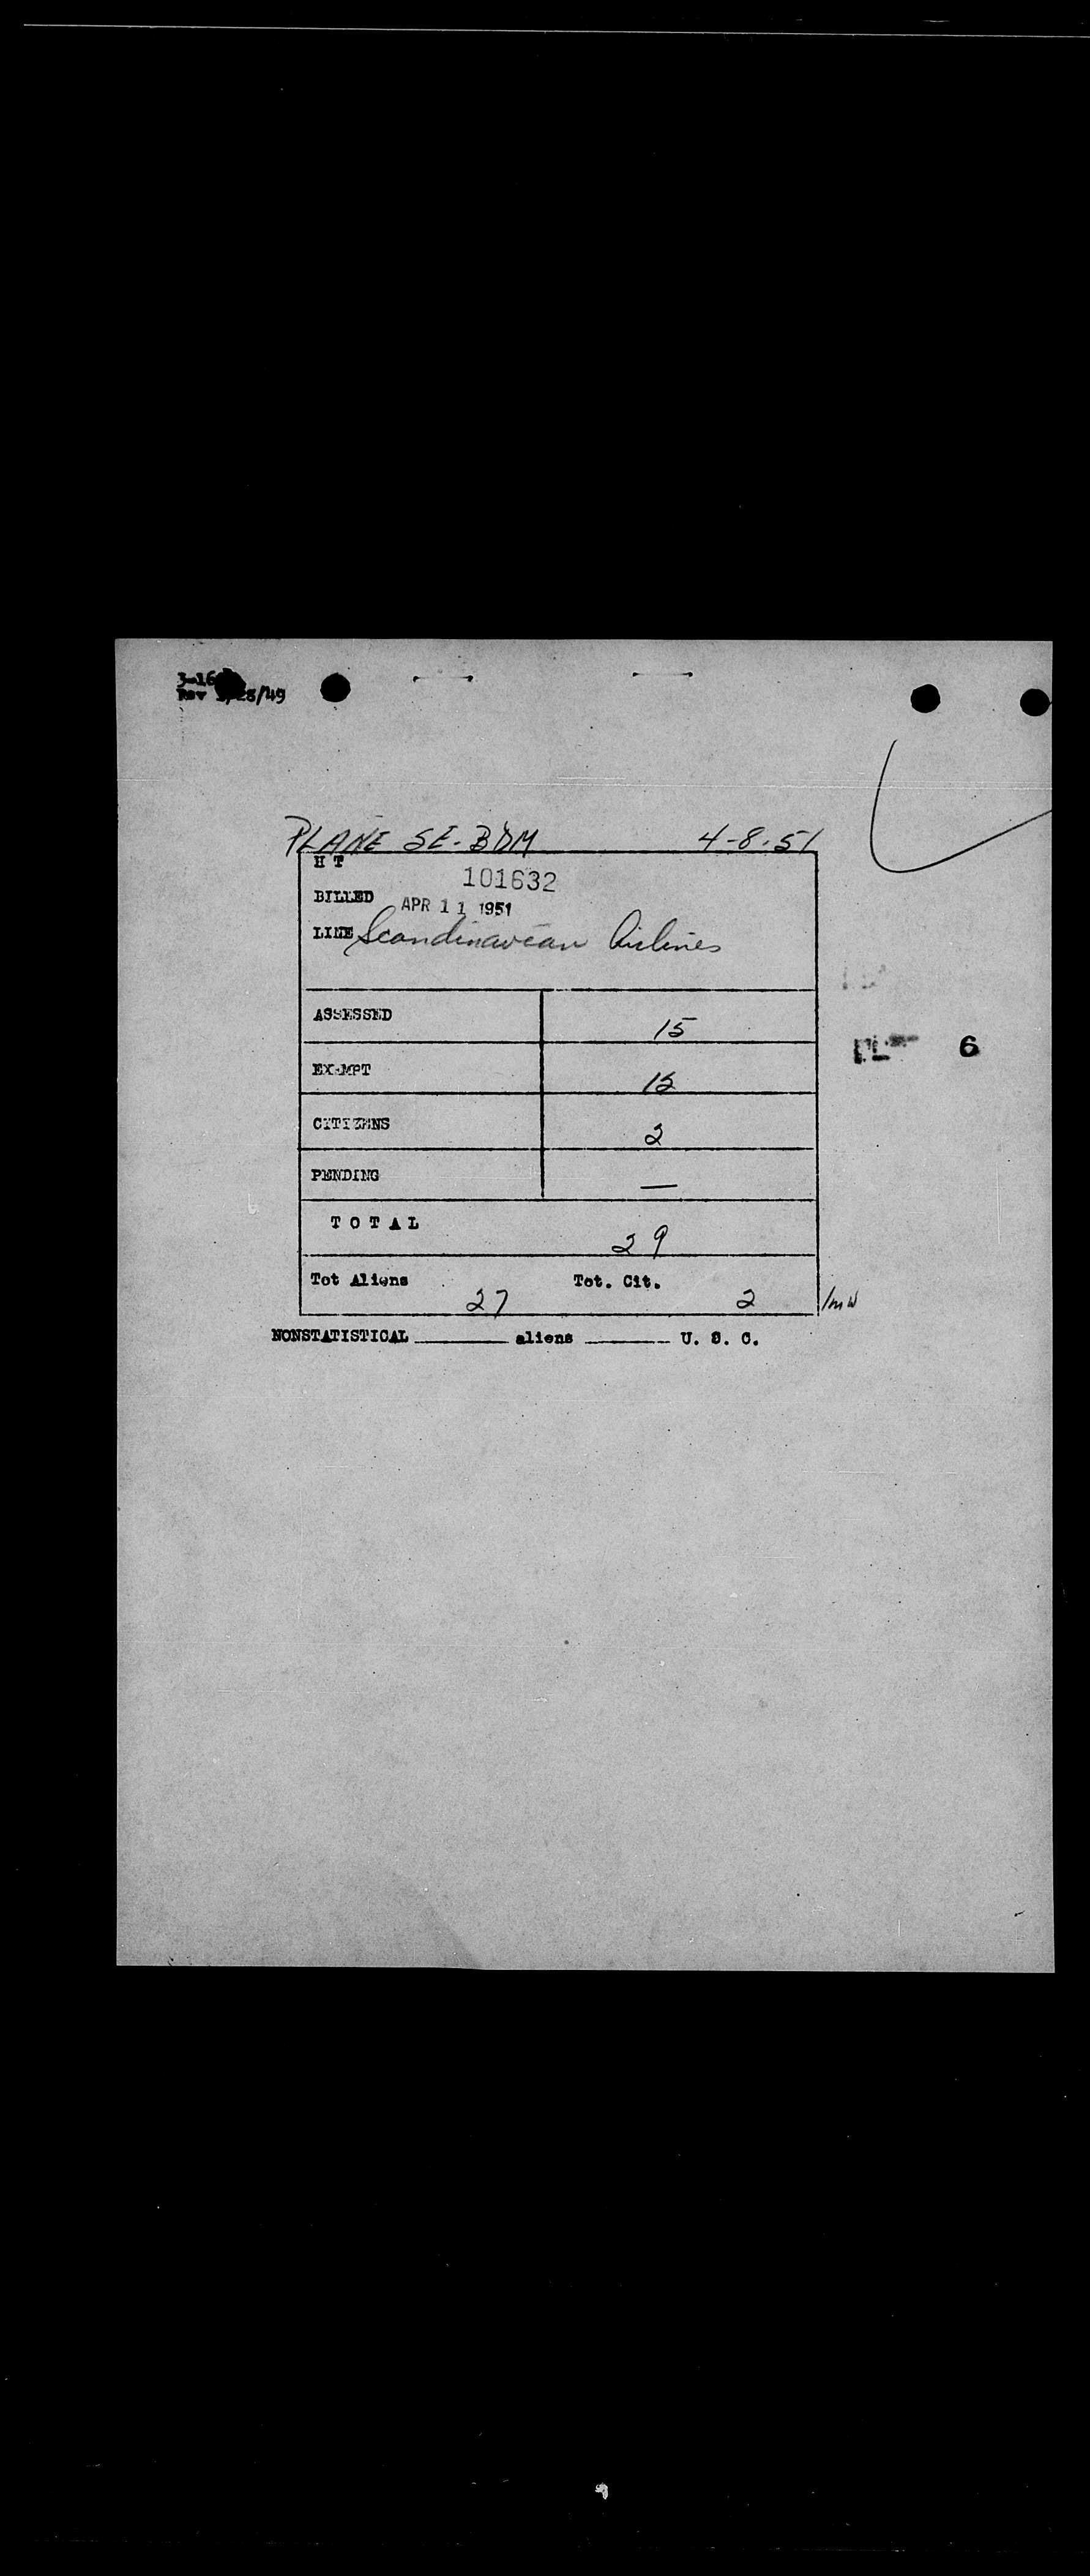 Rev
PLANE SE-BDM 4-8-51
H T
101632
BILLED APR 11 1951
LINE Scandinavian Airlines
ASSESSED 15
EXEMPT 12
CITIZENS 2
PENDING —
6
T O T A L 29
Tot Aliens 27 Tot. Cit. 2
NONSTATISTICAL ________ aliens ________ U. S. C.